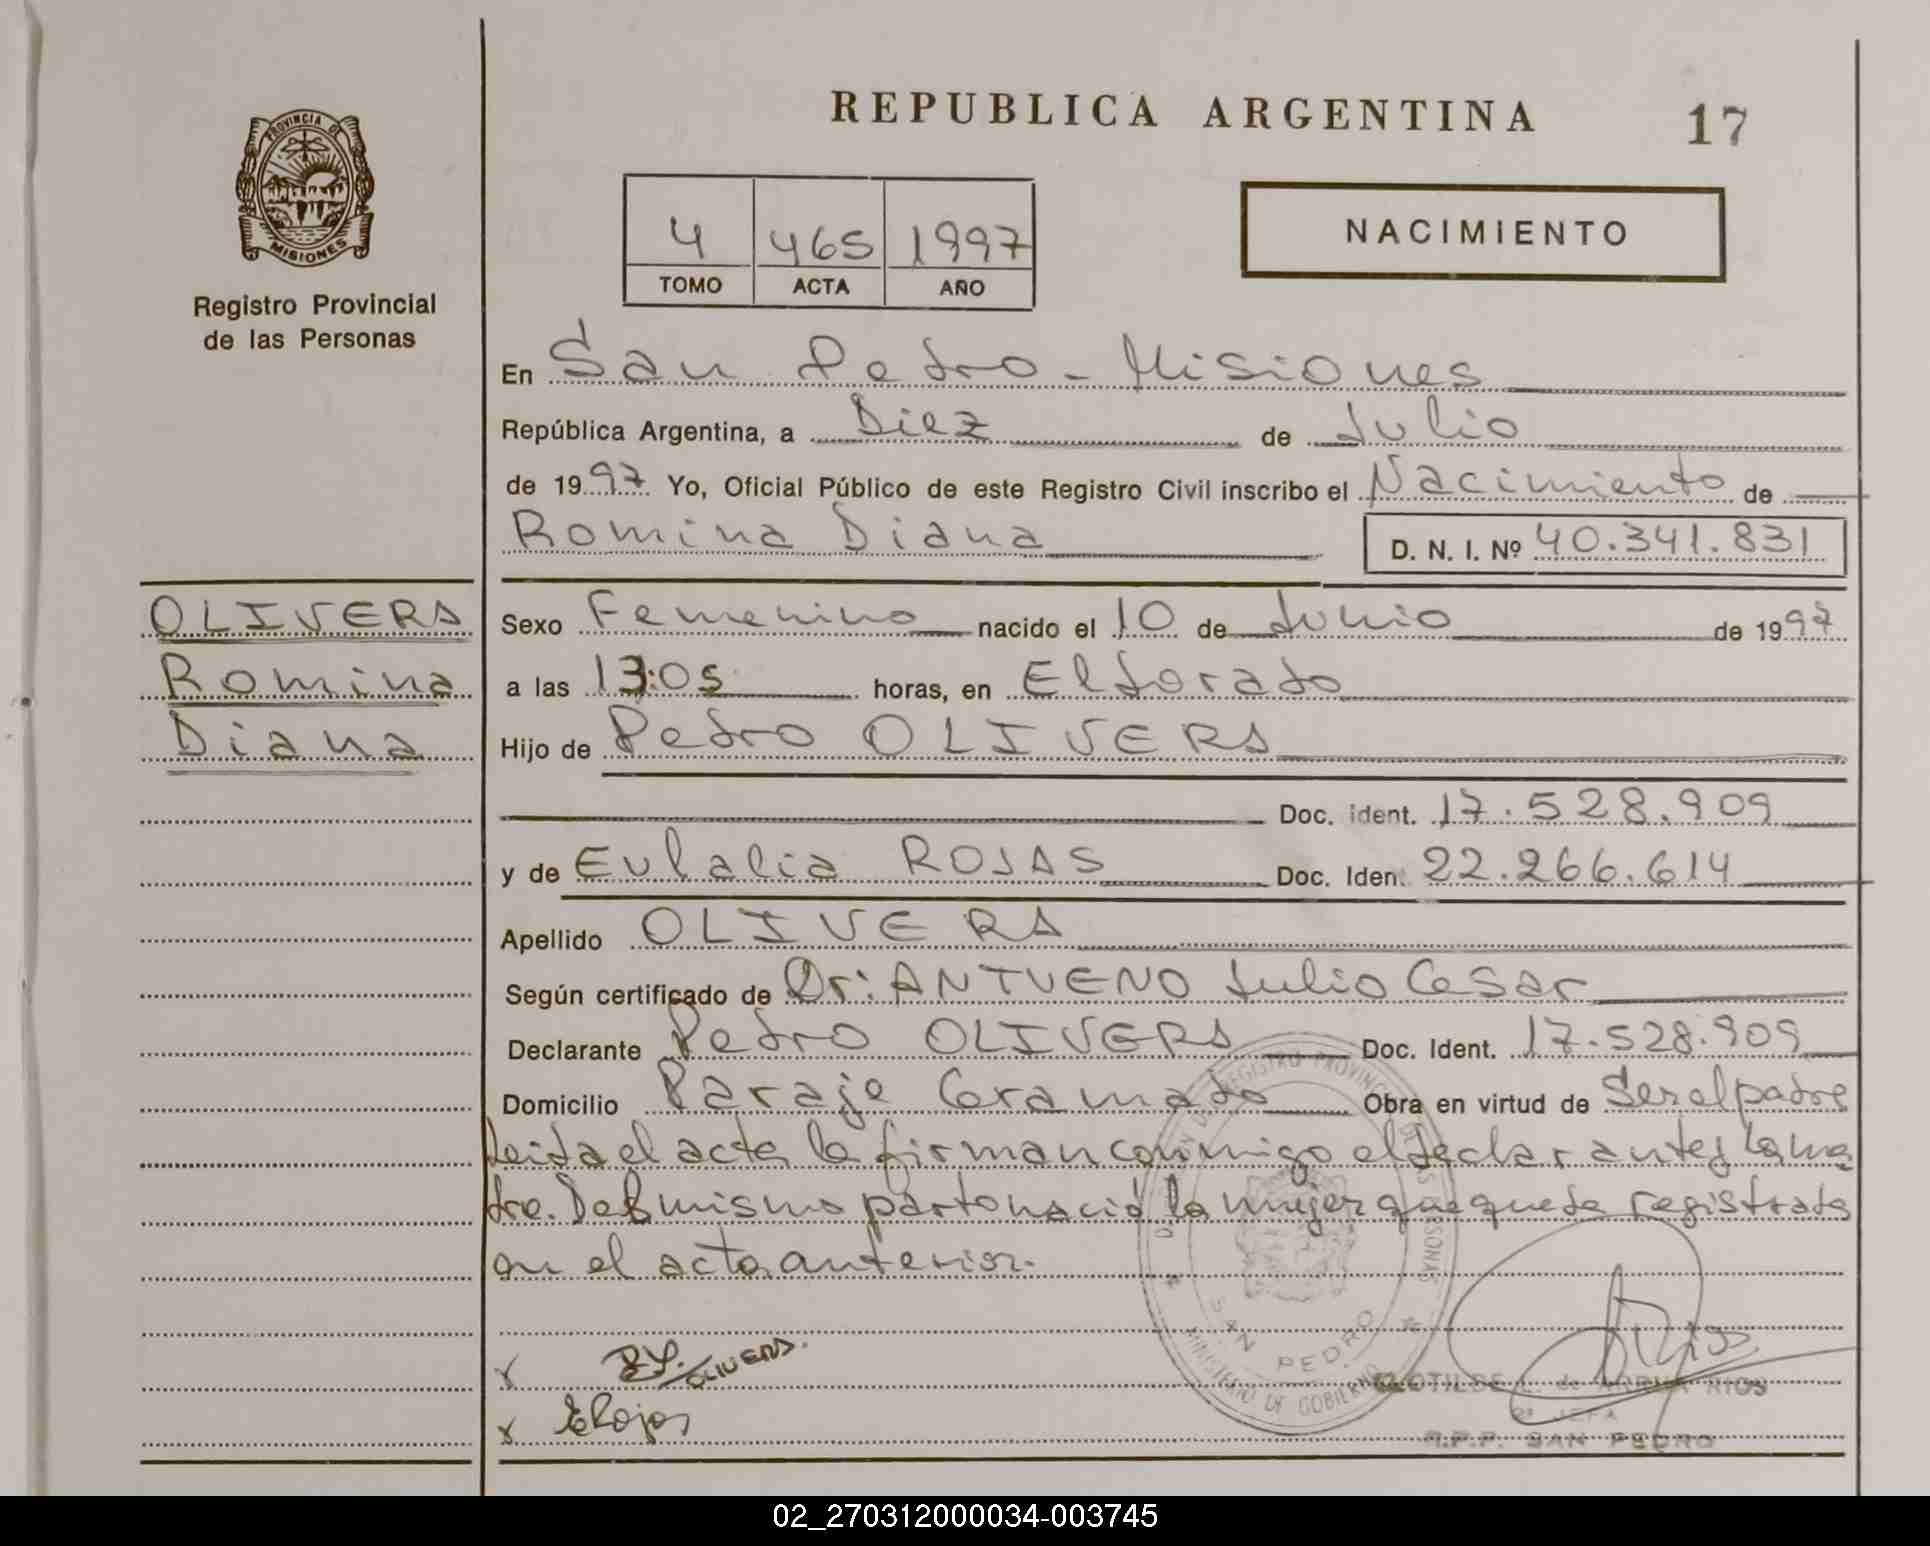 REPUBLICA ARGENTINA
17
PROVINCIA DE
MISIONES
Registro Provincial
de las Personas
4 465 1997
TOMO ACTA AÑO
NACIMIENTO
En San Pedro - Misiones
República Argentina, a Diez de Julio
de 1997 Yo, Oficial Público de este Registro Civil inscribo el Nacimiento de
Romina Diana D. N. I. Nº 40.341.831
OLIVERA
Romina
Diana
Sexo Femenino nacido el 10 de Junio de 1997
a las 13:05 horas, en Eldorado
Hijo de Pedro OLIVERA
Doc. ident. 17.528.909
y de Eulalia ROJAS Doc. Iden. 22.266.614
Apellido OLIVERA
Según certificado de Dr: ANTUENO Julio Cesar
Declarante Pedro OLIVERA Doc. Ident. 17.528.909
Domicilio Paraje Gramado Obra en virtud de Ser el padre
Leida el acta la firman conmigo el declarante y la ma
dre. Del mismo parto nació la mujer que queda registrada
en el acta anterior.
REGISTRO PROVINCIAL DE LAS PERSONAS
SAN PEDRO
MINISTERIO DE GOBIERNO
x OLIVERA.
x E Rojas
CLOTILDE L. de ARRUA RIOS
2ª JEFA
R.P.P. SAN PEDRO
02_270312000034-003745